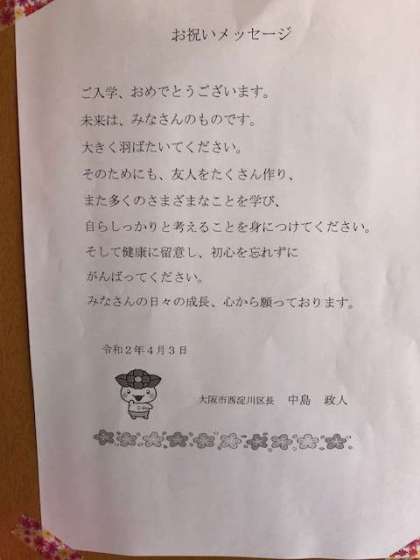 お祝いメッセージ
ご入学、おめでとうございます。
未来は、みなさんのものです。
大きく羽ばたいてください。
そのためにも、友人をたくさん作り、
また多くのさまざまなことを学び、
自らしっかりと考えることを身につけてください。
そして健康に留意し、初心を忘れずに
がんばってください。
みなさんの日々の成長、心から願っております。
令和２年４月３日
大阪市西淀川区長　中島　政人